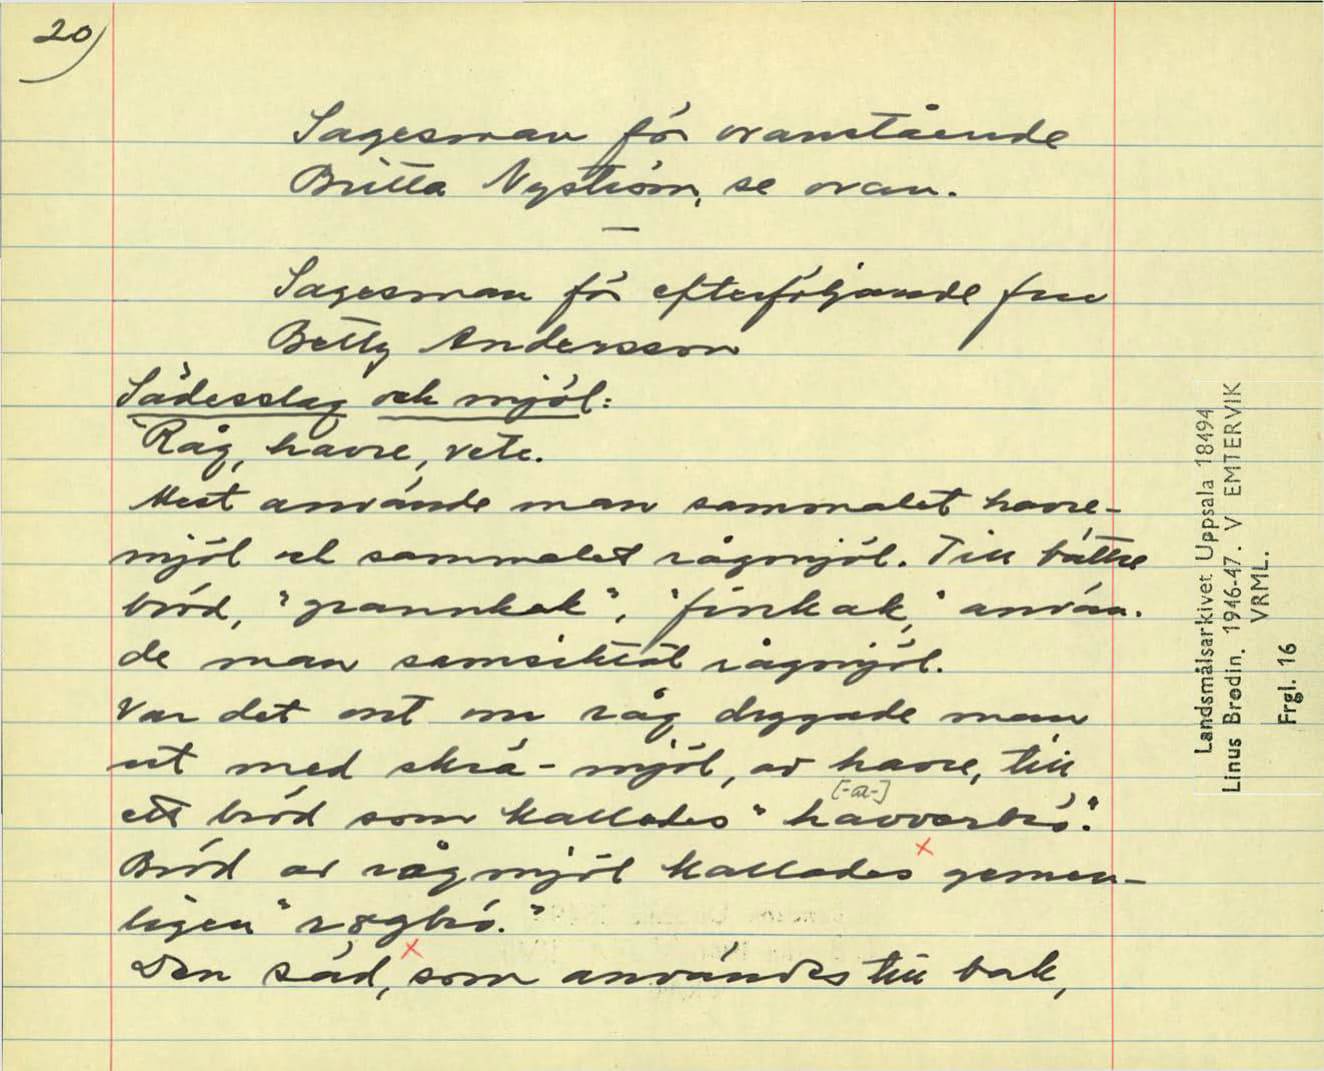 20)
Sagesman för ovanstående
Britta Nyström, se ovan.
—
Sagesman för efterföljande fru
Betty Andersson
Sädesslag och mjöl:
Råg, havre, vete.
Mest använde man sammalet havre-
mjöl och sammalet rågmjöl. Till bättre
bröd, "grannkak", "finkak", använ-
de man samsiktat rågmjöl.
Var det ont om råg drygade man
ut med skrä-mjöl, av havre, till
[-a-]
ett bröd som kallades "havverbrö".
Bröd av rågmjöl kallades gemen-
ligen "røgbrö."
Den säd, som användes till bak,
Landsmålsarkivet Uppsala 18494
Linus Brodin. 1946-47. V EMTERVIK
VRML.
Frgl. 16